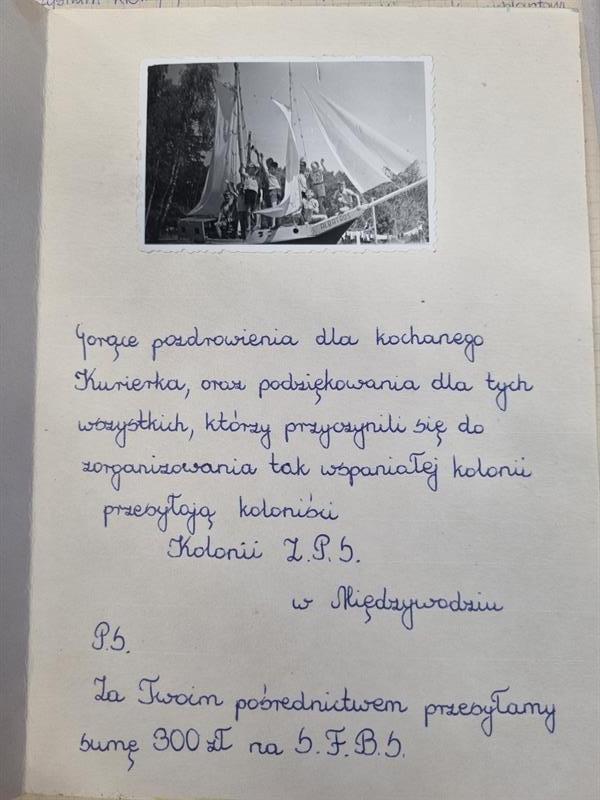 ALBATROS
Gorące pozdrowienia dla kochanego
Kurierka, oraz podziękowania dla tych
wszystkich, którzy przyczynili się do
zorganizowania tak wspaniałej kolonii
przesyłają koloniści
Kolonii Z.P.S.
w Międzywodziu
P.S.
Za Twoim pośrednictwem przesyłamy
sumę 300 zł na S.F.B.S.